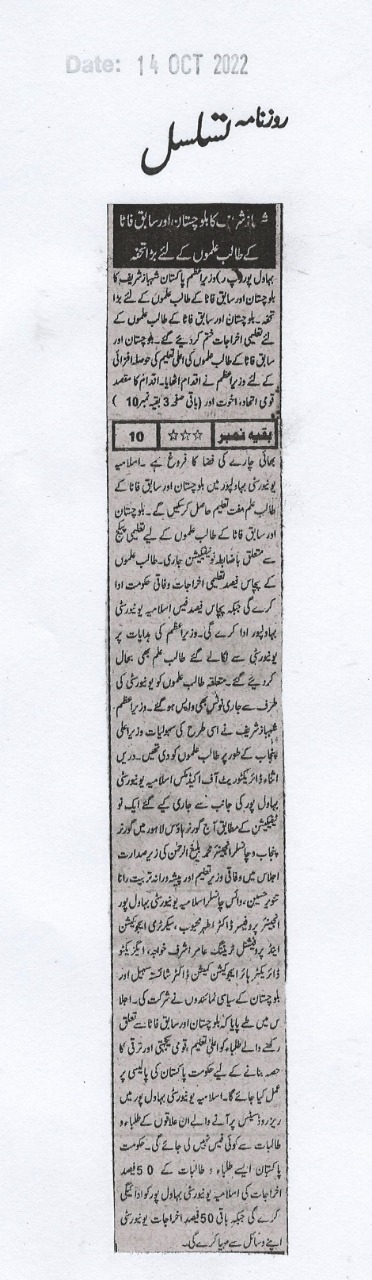 Date: 14 OCT 2022
روزنامہ تسلسل
شہباز شریف کا بلوچستان اور سابق فاٹا
کے طالب علموں کے لئے بڑا تحفہ
بہاول پور (پ ر) وزیراعظم پاکستان شہباز شریف کا
بلوچستان اور سابق فاٹا کے طالب علموں کے لئے بڑا
تحفہ۔ بلوچستان اور سابق فاٹا کے طالب علموں کے
لئے تعلیمی اخراجات ختم کر دیئے گئے۔ بلوچستان اور
سابق فاٹا کے طالب علموں کی اعلیٰ تعلیم کی حوصلہ افزائی
کے لئے وزیراعظم نے اقدام اٹھایا۔ اقدام کا مقصد
قومی اتحاد، اخوت اور (باقی صفحہ 3 بقیہ نمبر 10)
بقیہ نمبر ☆☆☆ 10
بھائی چارے کی فضا کا فروغ ہے۔ اسلامیہ
یونیورسٹی بہاولپور میں بلوچستان اور سابق فاٹا کے
طالب علم مفت تعلیم حاصل کر سکیں گے۔ بلوچستان
اور سابق فاٹا کے طالب علموں کے لیے تعلیمی پیکج
سے متعلق باضابطہ نوٹیفکیشن جاری۔ طالب علموں
کے پچاس فیصد تعلیمی اخراجات وفاقی حکومت ادا
کرے گی جبکہ پچاس فیصد فیس اسلامیہ یونیورسٹی
بہاولپور ادا کرے گی۔ وزیراعظم کی ہدایات پر
یونیورسٹی سے نکالے گئے طالب علم بھی بحال
کر دیئے گئے۔ متعلقہ طالب علموں کو یونیورسٹی کی
طرف سے جاری نوٹس بھی واپس ہو گئے۔ وزیراعظم
شہباز شریف نے اسی طرح کی سہولیات وزیر اعلیٰ
پنجاب کے طور پر طالب علموں کو دی تھیں۔ دریں
اثناء ڈائریکٹوریٹ آف اکیڈمکس اسلامیہ یونیورسٹی
بہاول پور کی جانب سے جاری کیے گئے ایک نو
ٹیفکیشن کے مطابق آج گورنر ہاؤس لاہور میں گورنر
پنجاب و چانسلر انجینئر محمد بلیغ الرحمن کی زیر صدارت
اجلاس میں وفاقی وزیر تعلیم اور پیشہ ورانہ تربیت رانا
تنویر حسین، وائس چانسلر اسلامیہ یونیورسٹی بہاول پور
انجینئر پروفیسر ڈاکٹر اطہر محبوب، سیکرٹری ایجوکیشن
اینڈ پروفیشنل ٹریننگ عامر اشرف خواجہ، ایگزیکٹو
ڈائریکٹر ہائر ایجوکیشن کمیشن ڈاکٹر شائستہ سہیل اور
بلوچستان کے سیاسی نمائندوں نے شرکت کی۔ اجلا
س میں طے پایا کہ بلوچستان اور سابق فاٹا سے تعلق
رکھنے والے طلباء کو اعلیٰ تعلیم، قومی یکجہتی اور ترقی کا
حصہ بنانے کے لیے حکومت پاکستان کی پالیسی پر
عمل کیا جائے گا۔ اسلامیہ یونیورسٹی بہاول پور میں
ریزروڈ سیٹس پر آنے والے ان علاقوں کے طلباء و
طالبات سے کوئی فیس نہیں لی جائے گی۔ حکومت
پاکستان ایسے طلباء و طالبات کے 50 فیصد
اخراجات کی اسلامیہ یونیورسٹی بہاول پور کو ادائیگی
کرے گی جبکہ باقی 50 فیصد اخراجات یونیورسٹی
اپنے وسائل سے مہیا کرے گی۔